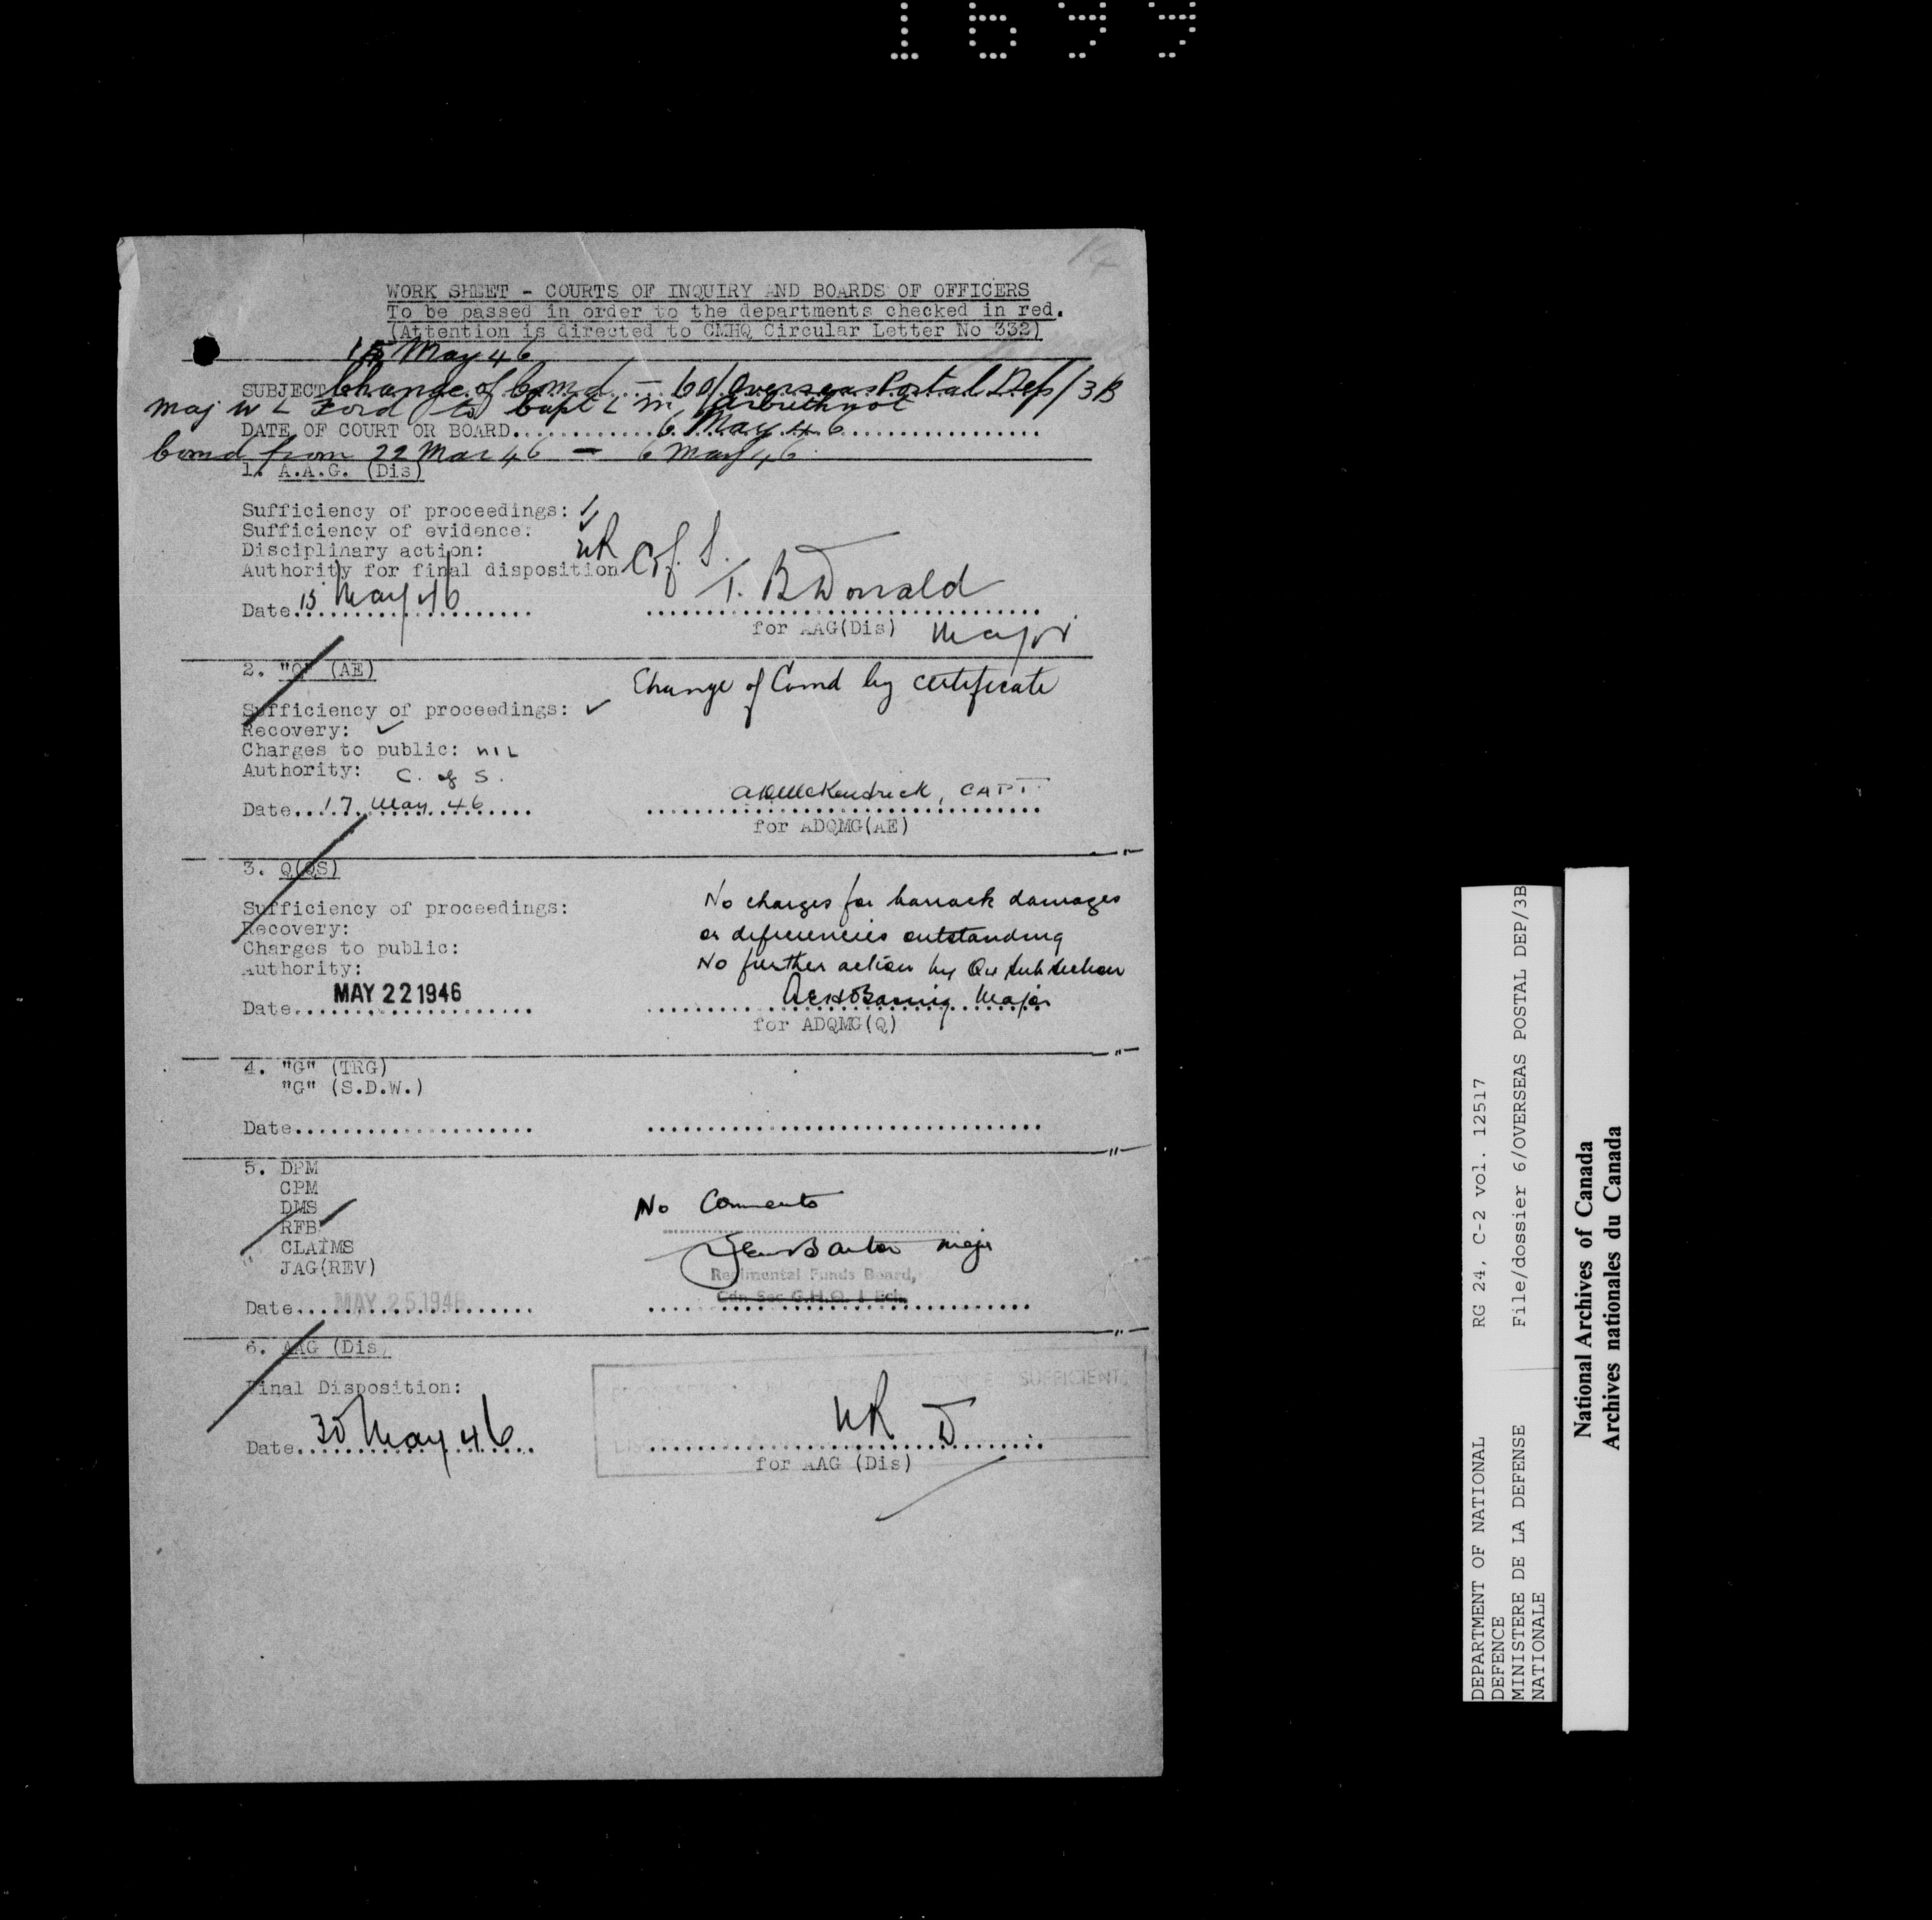 1699
14
WORK SHEET - COURTS OF INQUIRY AND BOARDS OF OFFICERS
To be passed in order to the departments checked in red.
(Attention is directed to CMHQ Circular Letter No 332)
15 May 46
SUBJECT Change of Comd - 6/Overseas Postal Dep/3B
Maj W L Ford to Capt L M Arbuthnot
DATE OF COURT OR BOARD 6 May 46
Comd from 22 Mar 46 - 6 May 46
1. A.A.G. (Dis)
Sufficiency of proceedings: ✓
Sufficiency of evidence: ✓
Disciplinary action: NR
Authority for final disposition C of S.
T. B Donald
Date 15 May 46
for AAG(Dis) Major
2. "Q" (AE)
Change of Comd by certificate
Sufficiency of proceedings: ✓
Recovery: ✓
Charges to public: NIL
Authority: C. of S.
McKendrick, CAPT
Date 17 May 46
for ADQMG(AE)
3. Q(QS)
No charges for barrack damages
Sufficiency of proceedings:
Recovery:
or deficiencies outstanding
Charges to public:
No further action by
Authority:
MAY 22 1946
Major
Date
for ADQMG(Q)
4. "G" (TRG)
"G" (S.D.W.)
Date
5. DPM
CPM
DMS
No Comments
RFB ✓
CLAIMS
Major
JAG(REV)
Regimental Funds Board,
Cdn Sec G.H.Q. 1 Ech.
Date MAY 25 1946
6. AAG (Dis)
SUFFICIENT
Final Disposition:
NR D
Date 30 May 46
for AAG (Dis)
DEPARTMENT OF NATIONAL
DEFENCE
MINISTERE DE LA DEFENSE
NATIONALE
RG 24, C-2 vol. 12517
File/dossier 6/OVERSEAS POSTAL DEP/3B
National Archives of Canada
Archives nationales du Canada